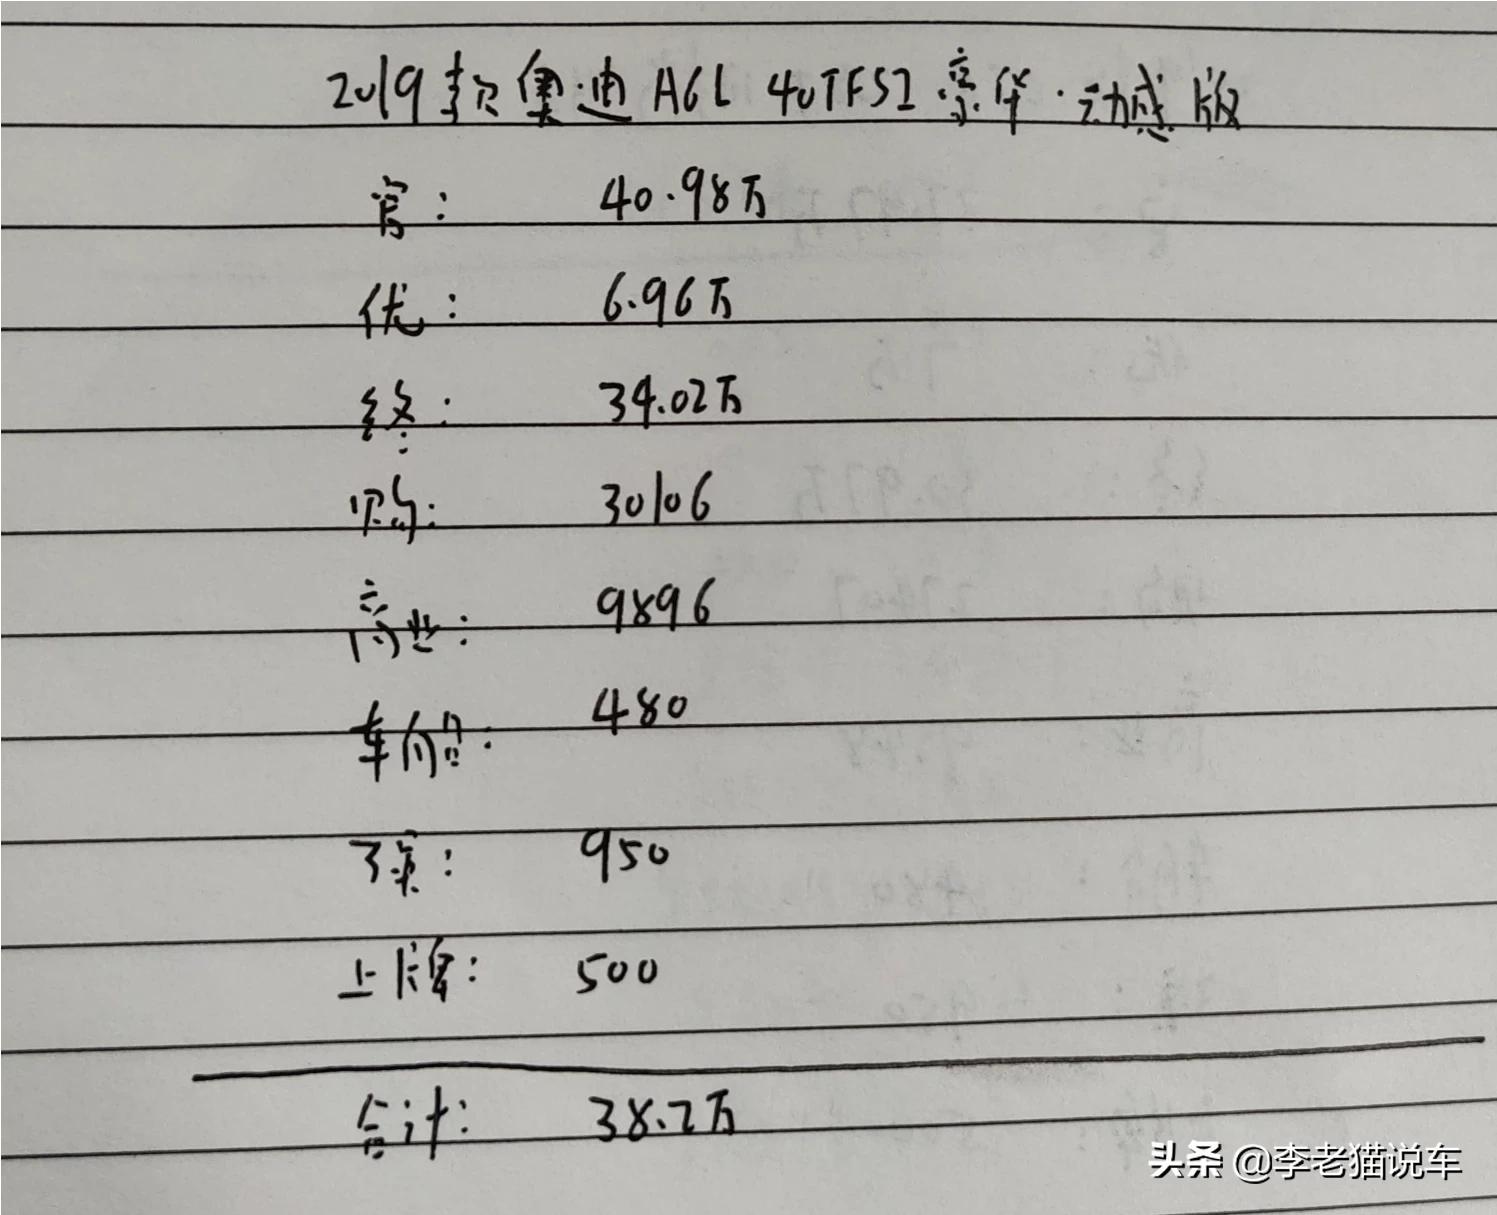 2019款奥迪A6L 40TFSI豪华·动感版
官: 40.98万
优: 6.96万
终: 34.02万
购: 30106
商业: 9896
车船: 480
交强: 950
上牌: 500
合计: 38.2万
头条 @李老猫说车